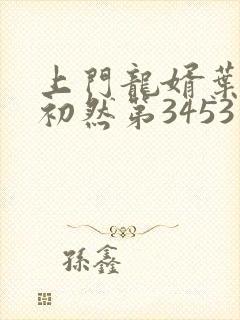 上門龍婿葉
初然第3453
孫鑫